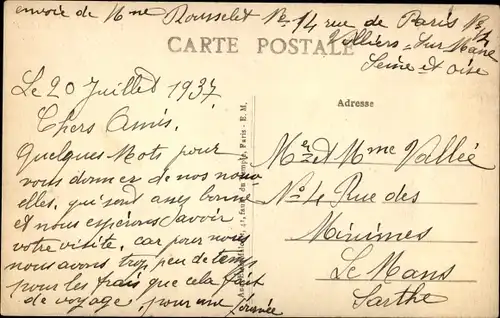 envoie de Mme Rousselet No 14 rue de Paris
Villiers-sur-Marne
Seine et Oise
CARTE POSTALE
Le 20 Juillet 1937
Chers Amis,
Quelques Mots pour
vous donner de nos nouv
elles, qui sont assez bonne
et nous espérons savoir
votre visitè, car pour nous
nous avons trop peu de temp
pour les frais que cela fait
de voyage, pour une journée
Adresse
Mr et Mme Vallée
No 4 Rue des
Minimes
Le Mans
Sarthe
faub. du Temple, Paris - E. M.